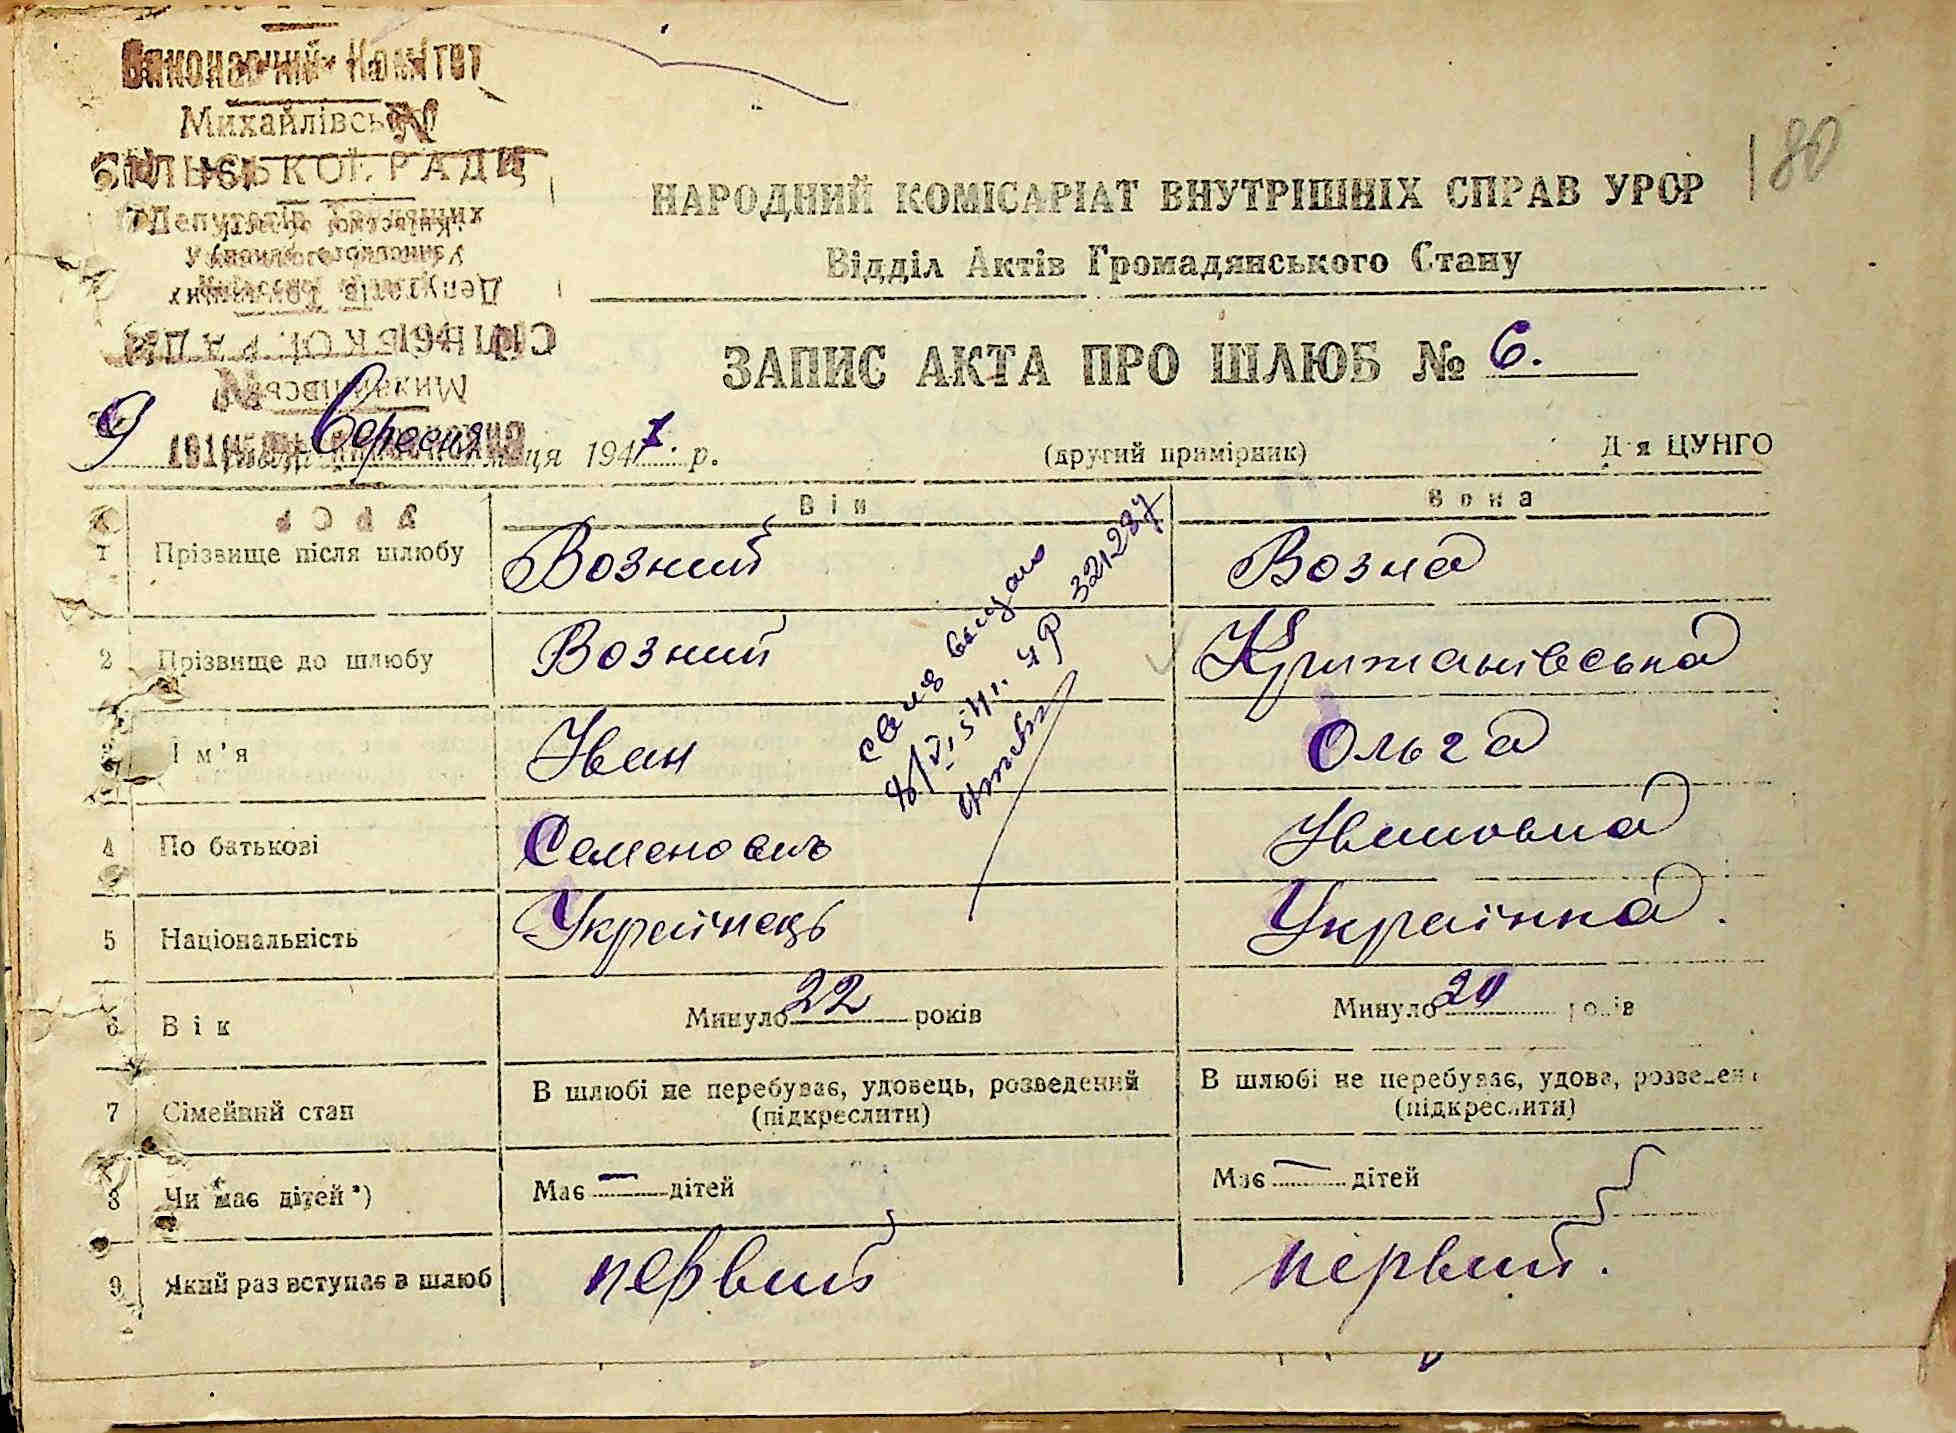 Виконавчий Комітет
Михайлівської
СІЛЬСЬКОЇ РАДИ
Депутатів Трудящих
180
НАРОДНИЙ КОМІСАРІАТ ВНУТРІШНІХ СПРАВ УРСР
Відділ Актів Громадянського Стану
ЗАПИС АКТА ПРО ШЛЮБ № 6.
9 Вересня м-ця 1947 р. (другий примірник) ЦУНГО
Він Вона
1 Прізвище після шлюбу Возний Возна
2 Прізвище до шлюбу Возний Крижанівська
3 Ім'я Іван Ольга
4 По батькові Семенович Івановна
5 Національність Українець Українка.
6 Вік Минуло 22 років Минуло 20 років
7 Сімейний стан В шлюбі не перебуває, удовець, розведений (підкреслити) В шлюбі не перебуває, удова, розведена (підкреслити)
8 Чи має дітей*) Має — дітей Має — дітей
9 Який раз вступає в шлюб первий первий.
321287